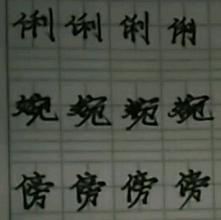 俐 俐 俐 俐
婉 婉 婉 婉
傍 傍 傍 傍